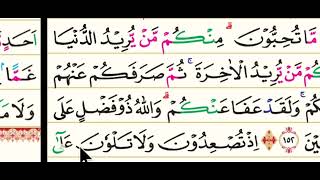 مَّا تُحِبُّوْنَ ۗ مِنْكُمْ مَّنْ يُّرِيْدُ الدُّنْيَا
كُمْ مَّنْ يُّرِيْدُ الْاٰخِرَةَ ۚ ثُمَّ صَرَفَكُمْ عَنْهُمْ
كُمْ ۚ وَلَقَدْ عَفَا عَنْكُمْ ۗ وَاللّٰهُ ذُوْ فَضْلٍ عَلَى
يْنَ ۝١٥٢ اِذْ تُصْعِدُوْنَ وَلَا تَلْوٗنَ
اَحَدٍ
غَمًّا
وَلَا مَا